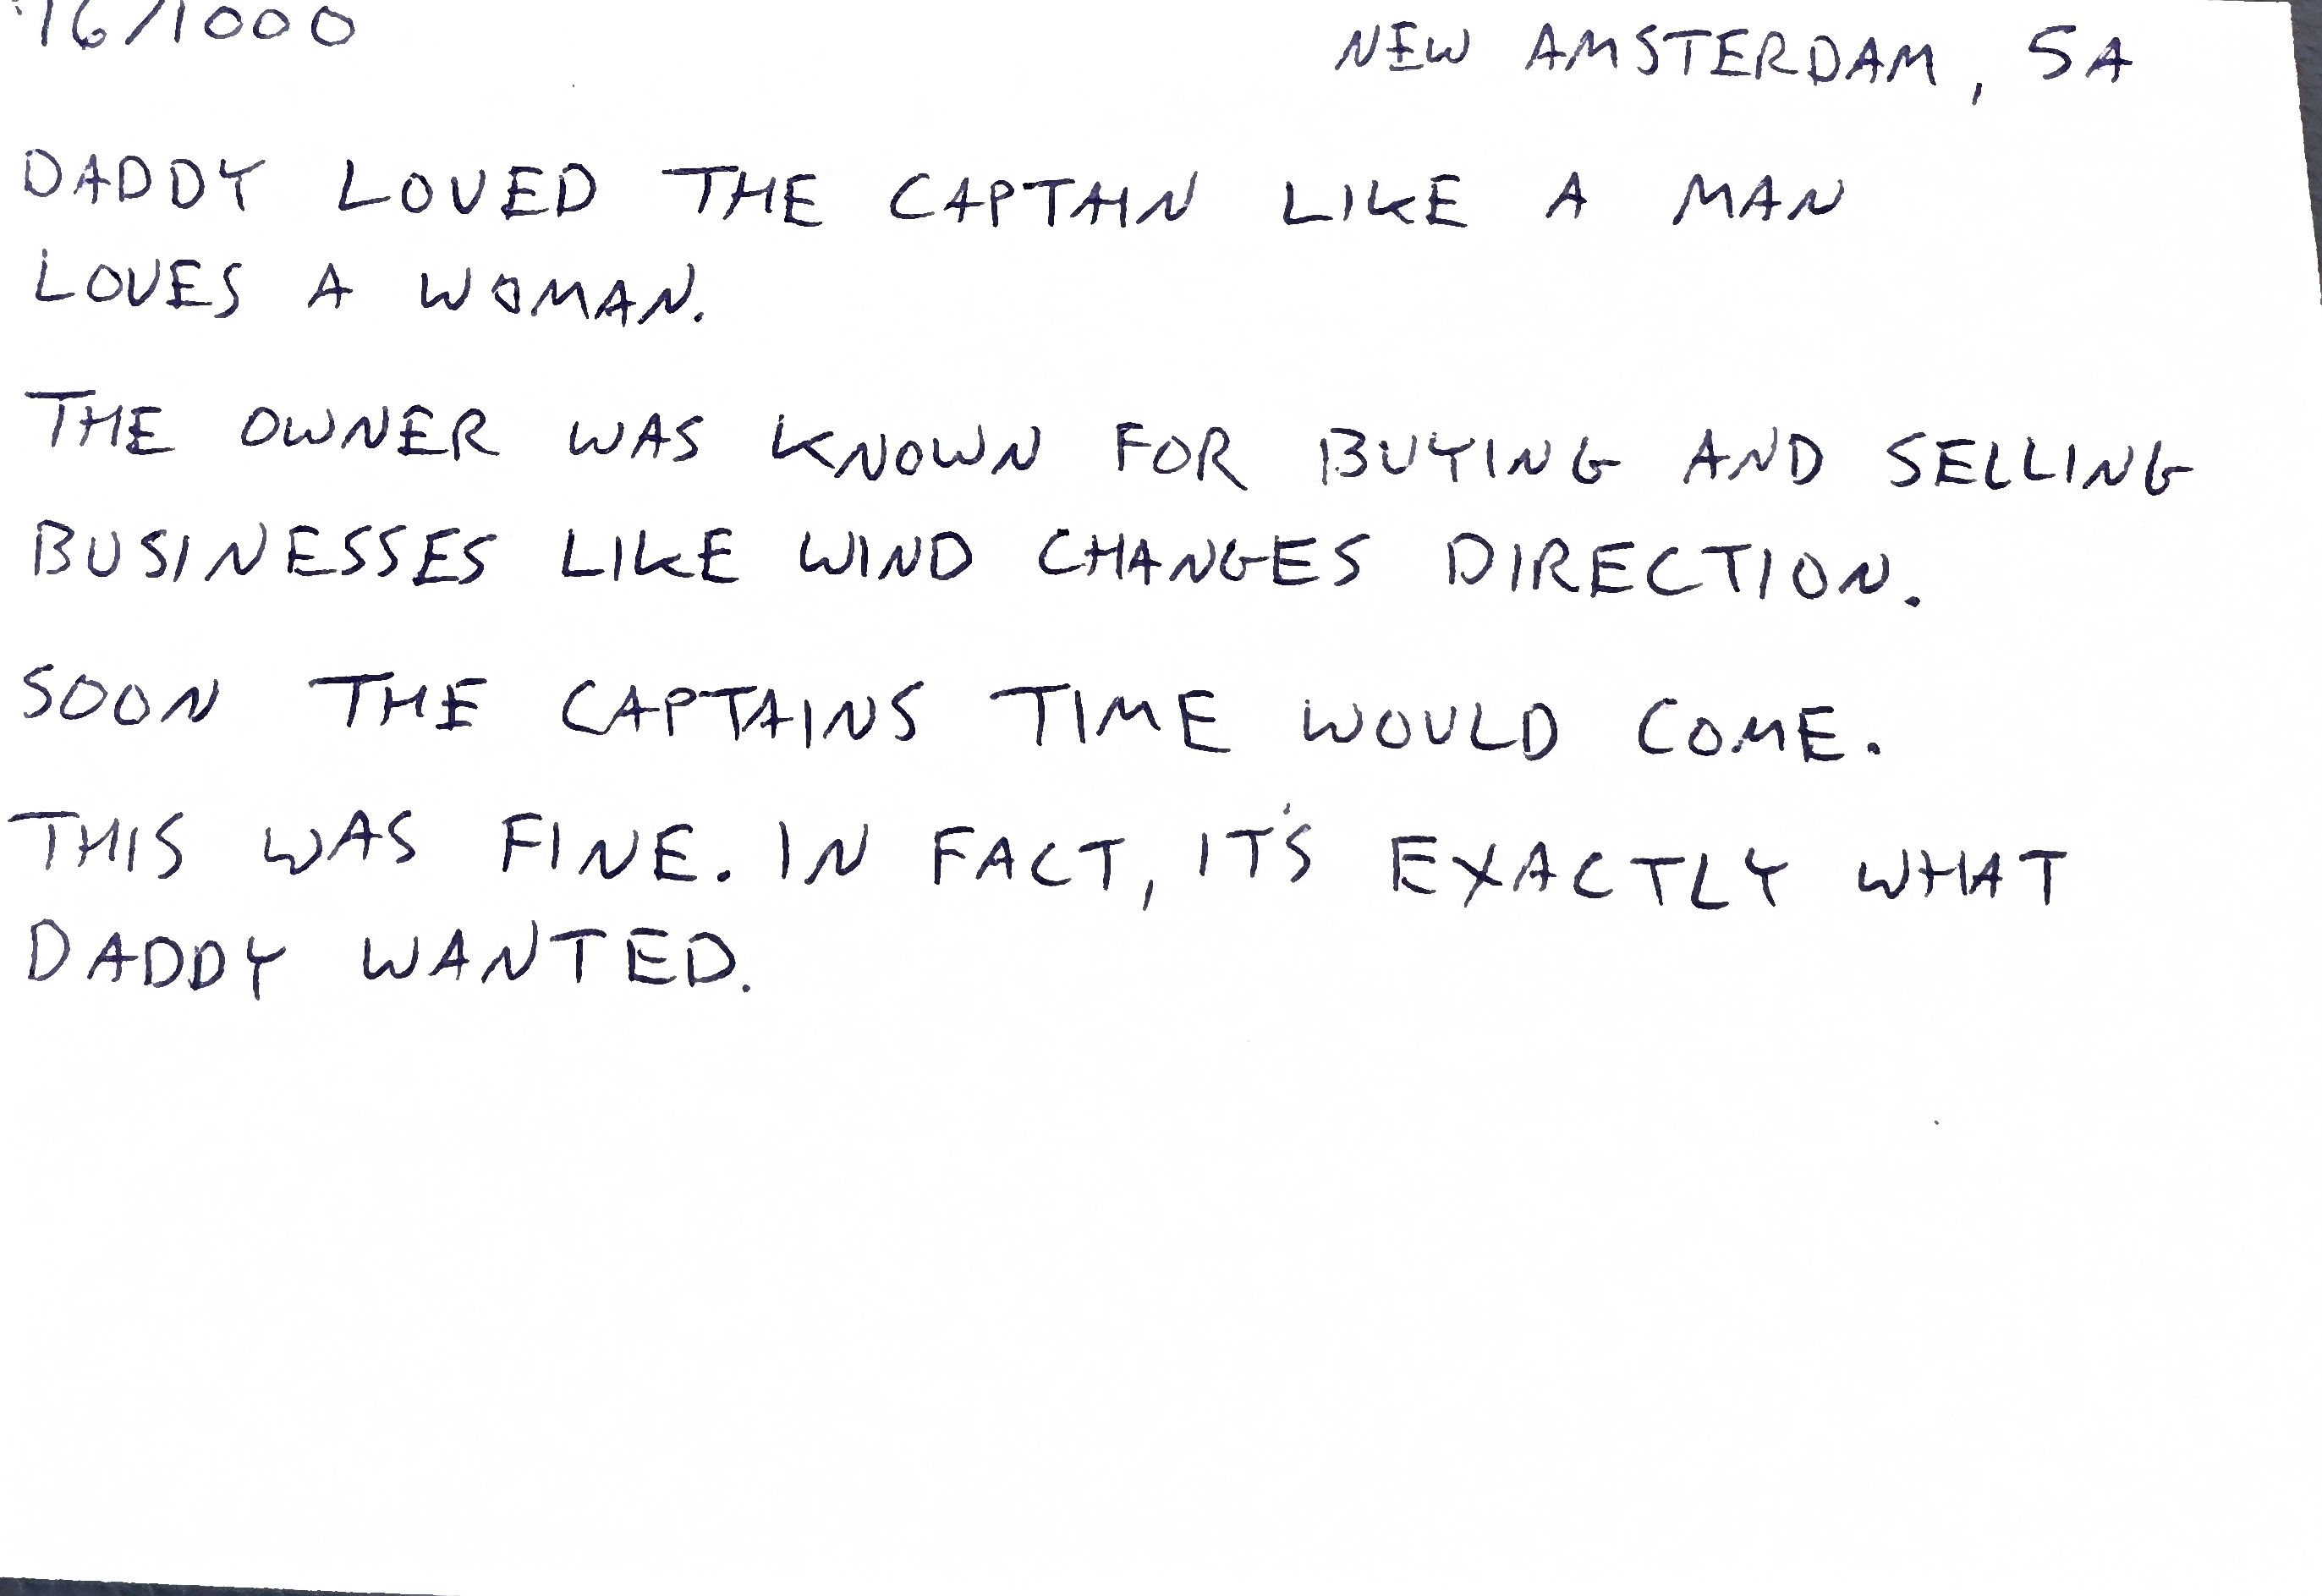 16/1000
NEW AMSTERDAM, SA
DADDY LOVED THE CAPTAIN LIKE A MAN
LOVES A WOMAN.
THE OWNER WAS KNOWN FOR BUYING AND SELLING
BUSINESSES LIKE WIND CHANGES DIRECTION.
SOON THE CAPTAINS TIME WOULD COME.
THIS WAS FINE. IN FACT, IT'S EXACTLY WHAT
DADDY WANTED.